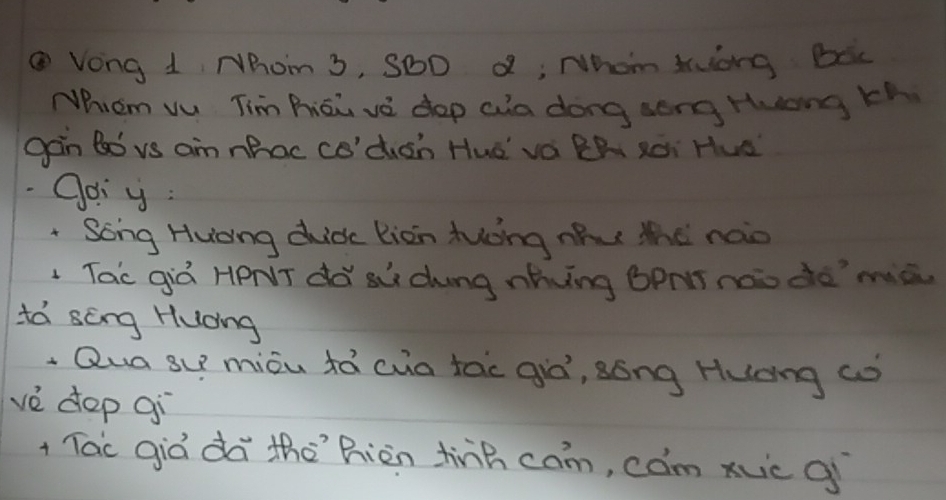 Vòng 1, Nhóm 3, SBD 2; Nhóm trưởng Bắc
Nhiệm vụ Tìm hiểu vẻ đẹp của dòng sông Hương khi
gắn bó vs âm nhạc cổ điển Huế và khi rời Huế
- Gợi ý:
+ Sông Hương được liên tưởng như thế nào
+ Tác giả HPNT đã sử dụng những BPNT nào để miêu
tả sông Hương
+ Qua sự miêu tả của tác giả, sông Hương có
vẻ đẹp gì
+ Tác giả đã thể hiện tình cảm, cảm xúc gì